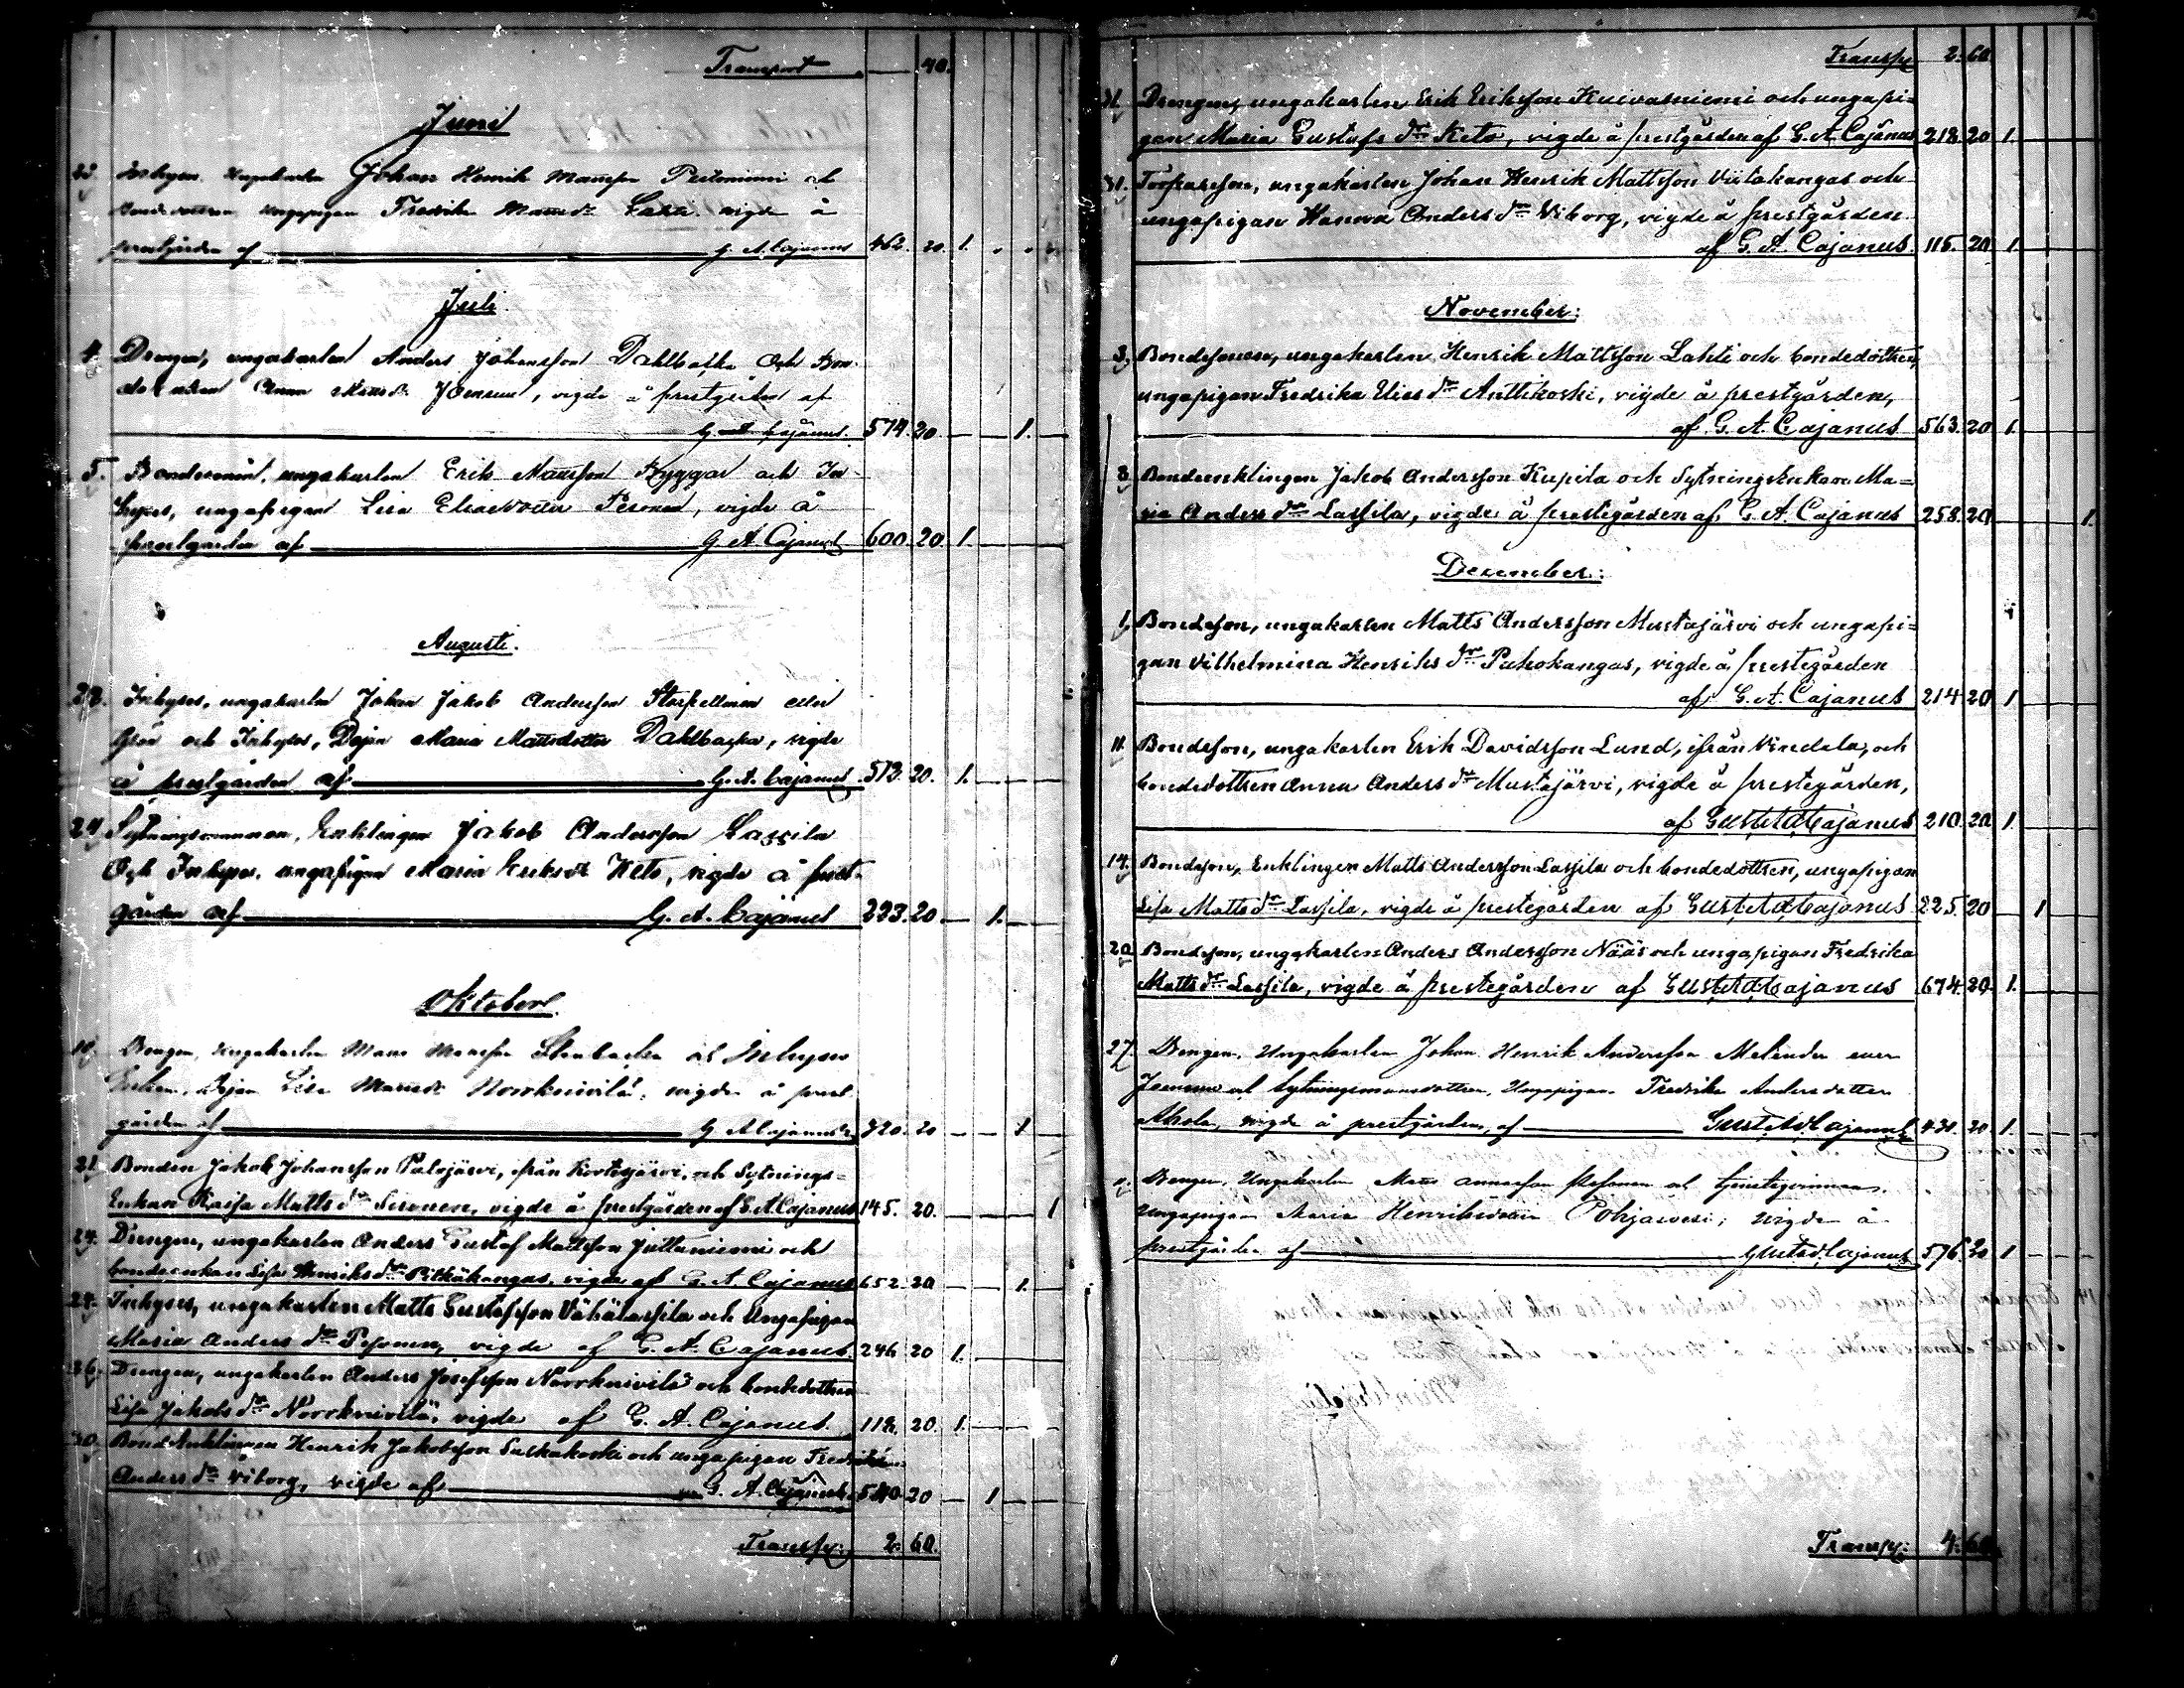 Transport 40.
Juni
23. Inhyses Ungakarlen Johan Henrik Mattsson och
ungapigan Fredrika Mattsdr vigde å
prestgården af G. A. Cajanus 462. 20. 1.
Juli
4. Drengen, ungakarlen Anders Johansson Dahlbacka och Bon-
dedottren Anna Mattsdr Joensuu, vigde å prestgården af
G. A. Cajanus. 574. 20. 1.
5. Bondesonen, ungakarlen Erik Mattsson Kyggar och In-
hyses, ungapigan Lisa Eliasdotter Pesonen, vigde å
prestgården af G. A. Cajanus 600. 20. 1.
Augusti.
23. Inhyses, ungakarlen Johan Jakob Andersson eller
och Inhyses, Dejan Maria Mattsdotter Dahlbacka, vigde
å prestgården af G. A. Cajanus 513. 20. 1.
24. Sytningsmannen, Enklingen Jakob Andersson Lassila
Och Inhyses, ungapigan Maria Eriksdr Keto, vigde å prest-
gården af G. A. Cajanus 223. 20 1.
Oktober.
Drengen, Ungakarlen Matts Mattsson Stenbacka och Inhyses
Enkan, Dejan Lisa Mattsdr Norrknivilä, vigde å prest
gården af G A Cajanus 720. 20 1
21. Bonden Jakob Johansson Palojärvi, ifrån Kortesjärvi, och Sytnings-
Enkan Kaisa Matts dr Sironen, vigde å prestgården af G. A. Cajanus 145. 20. 1
24. Drengen, ungakarlen Anders Gustaf Mattsson Juttuniemi och
bondeenkan Lisa Henriks dr Pitkäkangas, vigde af G. A. Cajanus 652. 20 1.
24. Inhyses, ungakarlen Matts Gustafsson Vähälassila och Ungapigan
Maria Anders dr Pesonen, vigde af G. A. Cajanus. 246 20 1.
26. Drengen, ungakarlen Anders Josefsson Norrknivilä och bondedottren
Lisa Jakobs dr Norrknivilä, vigde af G. A. Cajanus. 112. 20. 1.
30. Bondenklingen Henrik Jakobsson och ungapigan
Anders dr Viborg, vigde af G. A. Cajanus 540 20 1
Transp: 2. 60.
Transp: 2. 60.
31. Drengen, ungakarlen Erik Eriksson Kuivasniemi och ungapi-
gan Maria Gustafs dr Keto, vigde å prestgården af G. A. Cajanus 218 20 1.
31. Torparson, ungakarlen Johan Henrik Mattsson Viitakangas och
ungapigan Hanna Anders dr Viborg, vigde å prestgården
af G. A. Cajanus. 115. 20 1.
November:
3. Bondesonen, ungakarlen Henrik Mattsson Lahti och bondedottren,
ungapigan Fredrika Elias dr Anttikoski, vigde å prestgården,
af G. A. Cajanus 563. 20 1.
8. Bondeenklingen Jakob Andersson Kupila och Sytningsenkan Ma-
ria Anders dr Lassila, vigde å prestegården af G. A. Cajanus 258. 20 1.
December:
1. Bondeson, ungakarlen Matts Andersson Mustajärvi och ungapi-
gan Vilhelmina Henriks dr Puhokangas, vigde å prestegården
af G. A. Cajanus 214 20 1
11. Bondeson, ungakarlen Erik Davidsson Lund, ifrån Vindala, och
bondedottren Anna Anders dr Mustajärvi, vigde å prestegården,
af Gust. Ad. Cajanus 210. 20. 1.
14. Bondeson, Enklingen Matts Andersson Lassila och bondedottren, ungapigan
Lisa Matts dr Lassila, vigde å prestegården af Gust. Ad. Cajanus 225. 20 1
20 Bondeson, ungakarlen Anders Andersson Nääs och ungapigan Fredrika
Matts dr Lassila, vigde å prestegården af Gust. Ad. Cajanus 674. 20. 1.
27 Drengen, Ungakarlen Johan Henrik Andersson Melender eller
Joensuu och Sytningsmansdottren, Ungapigan Fredrika Andersdotter
Ahola, vigde å prestgården, af Gust. Ad. Cajanus 431. 20. 1.
Drengen, Ungakarlen Matts Andersson Pesonen och tjensteqvinnan,
ungapigan Maria Henriksdotter Pohjavesi, vigde å
prestgården af Gust. Ad. Cajanus 576. 20 1
Transp: 4. 60.